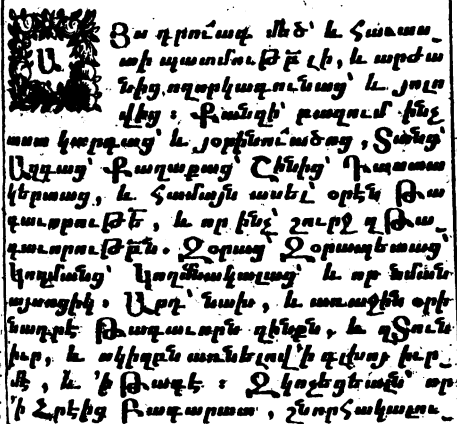 ԱՅս դրու՛ագ մեծ՝ և Հաւաս֊
տի պատմութբ̃ լի, և արժա
նից ողորկագունաց՝ և յոլո
վից ։ Քանզի՝ բազում ինչ
աստ կարգաց՝ և յօրինու՛ածոց, Տանց՝
Ազգաց՝ Քաղաքաց՝ Շինից՝ Դաստա
կերտաց, և Համայն ասել՝ օրէն Թա
գաւորութե̃, և որ ինչ՝ շուրջ զԹա֊
գաւորութբ̃ն. Զօրաց՝ Զօրապետաց՝
Կողմանց՝ Կողմնակալաց՝ և որ նման
այսոցիկ. Արդ՝ նախ, և առաջին օրի
նադրէ Թագաւորն զինքն, և զՏուն
իւր, և սկիզբն առնելով ՚ի գլխոյ իւր֊
մէ, և ՚ի Թագէ ։ Զկոչեցեալն՝ որ
՚ի Հրէից Բագարատ, շնորՀակալու֊